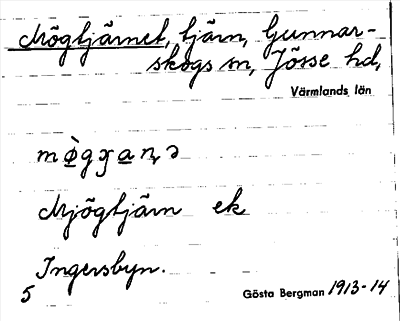 Mögtjärnet, tjärn, Gunnar-
skogs sn, Jösse hd,
Värmlands län
Mjögtjärn ek
Ingersbyn.
5
Gösta Bergman 1913-14